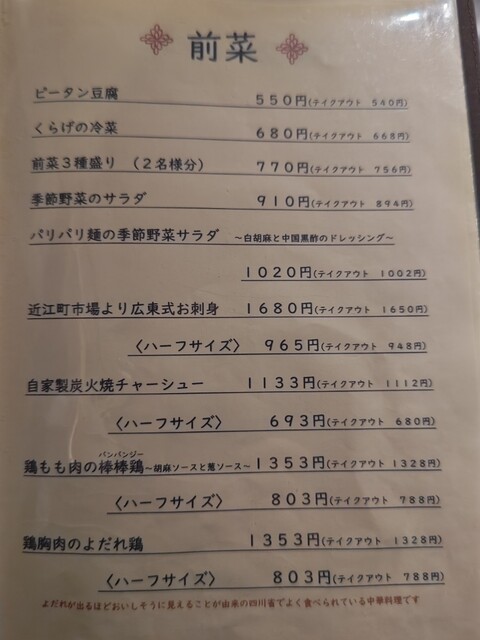 前菜
ピータン豆腐 550円(テイクアウト 540円)
くらげの冷菜 680円(テイクアウト 668円)
前菜3種盛り (2名様分) 770円(テイクアウト 756円)
季節野菜のサラダ 910円(テイクアウト 894円)
パリパリ麺の季節野菜サラダ ～白胡麻と中国黒酢のドレッシング～
1020円(テイクアウト 1002円)
近江町市場より広東式お刺身 1680円(テイクアウト 1650円)
〈ハーフサイズ〉 965円(テイクアウト 948円)
自家製炭火焼チャーシュー 1133円(テイクアウト 1112円)
〈ハーフサイズ〉 693円(テイクアウト 680円)
バンバンジー
鶏もも肉の棒棒鶏～胡麻ソースと葱ソース～1353円(テイクアウト 1328円)
〈ハーフサイズ〉 803円(テイクアウト 788円)
鶏胸肉のよだれ鶏 1353円(テイクアウト 1328円)
〈ハーフサイズ〉 803円(テイクアウト 788円)
よだれが出るほどおいしそうに見えることが由来の四川省でよく食べられている中華料理です